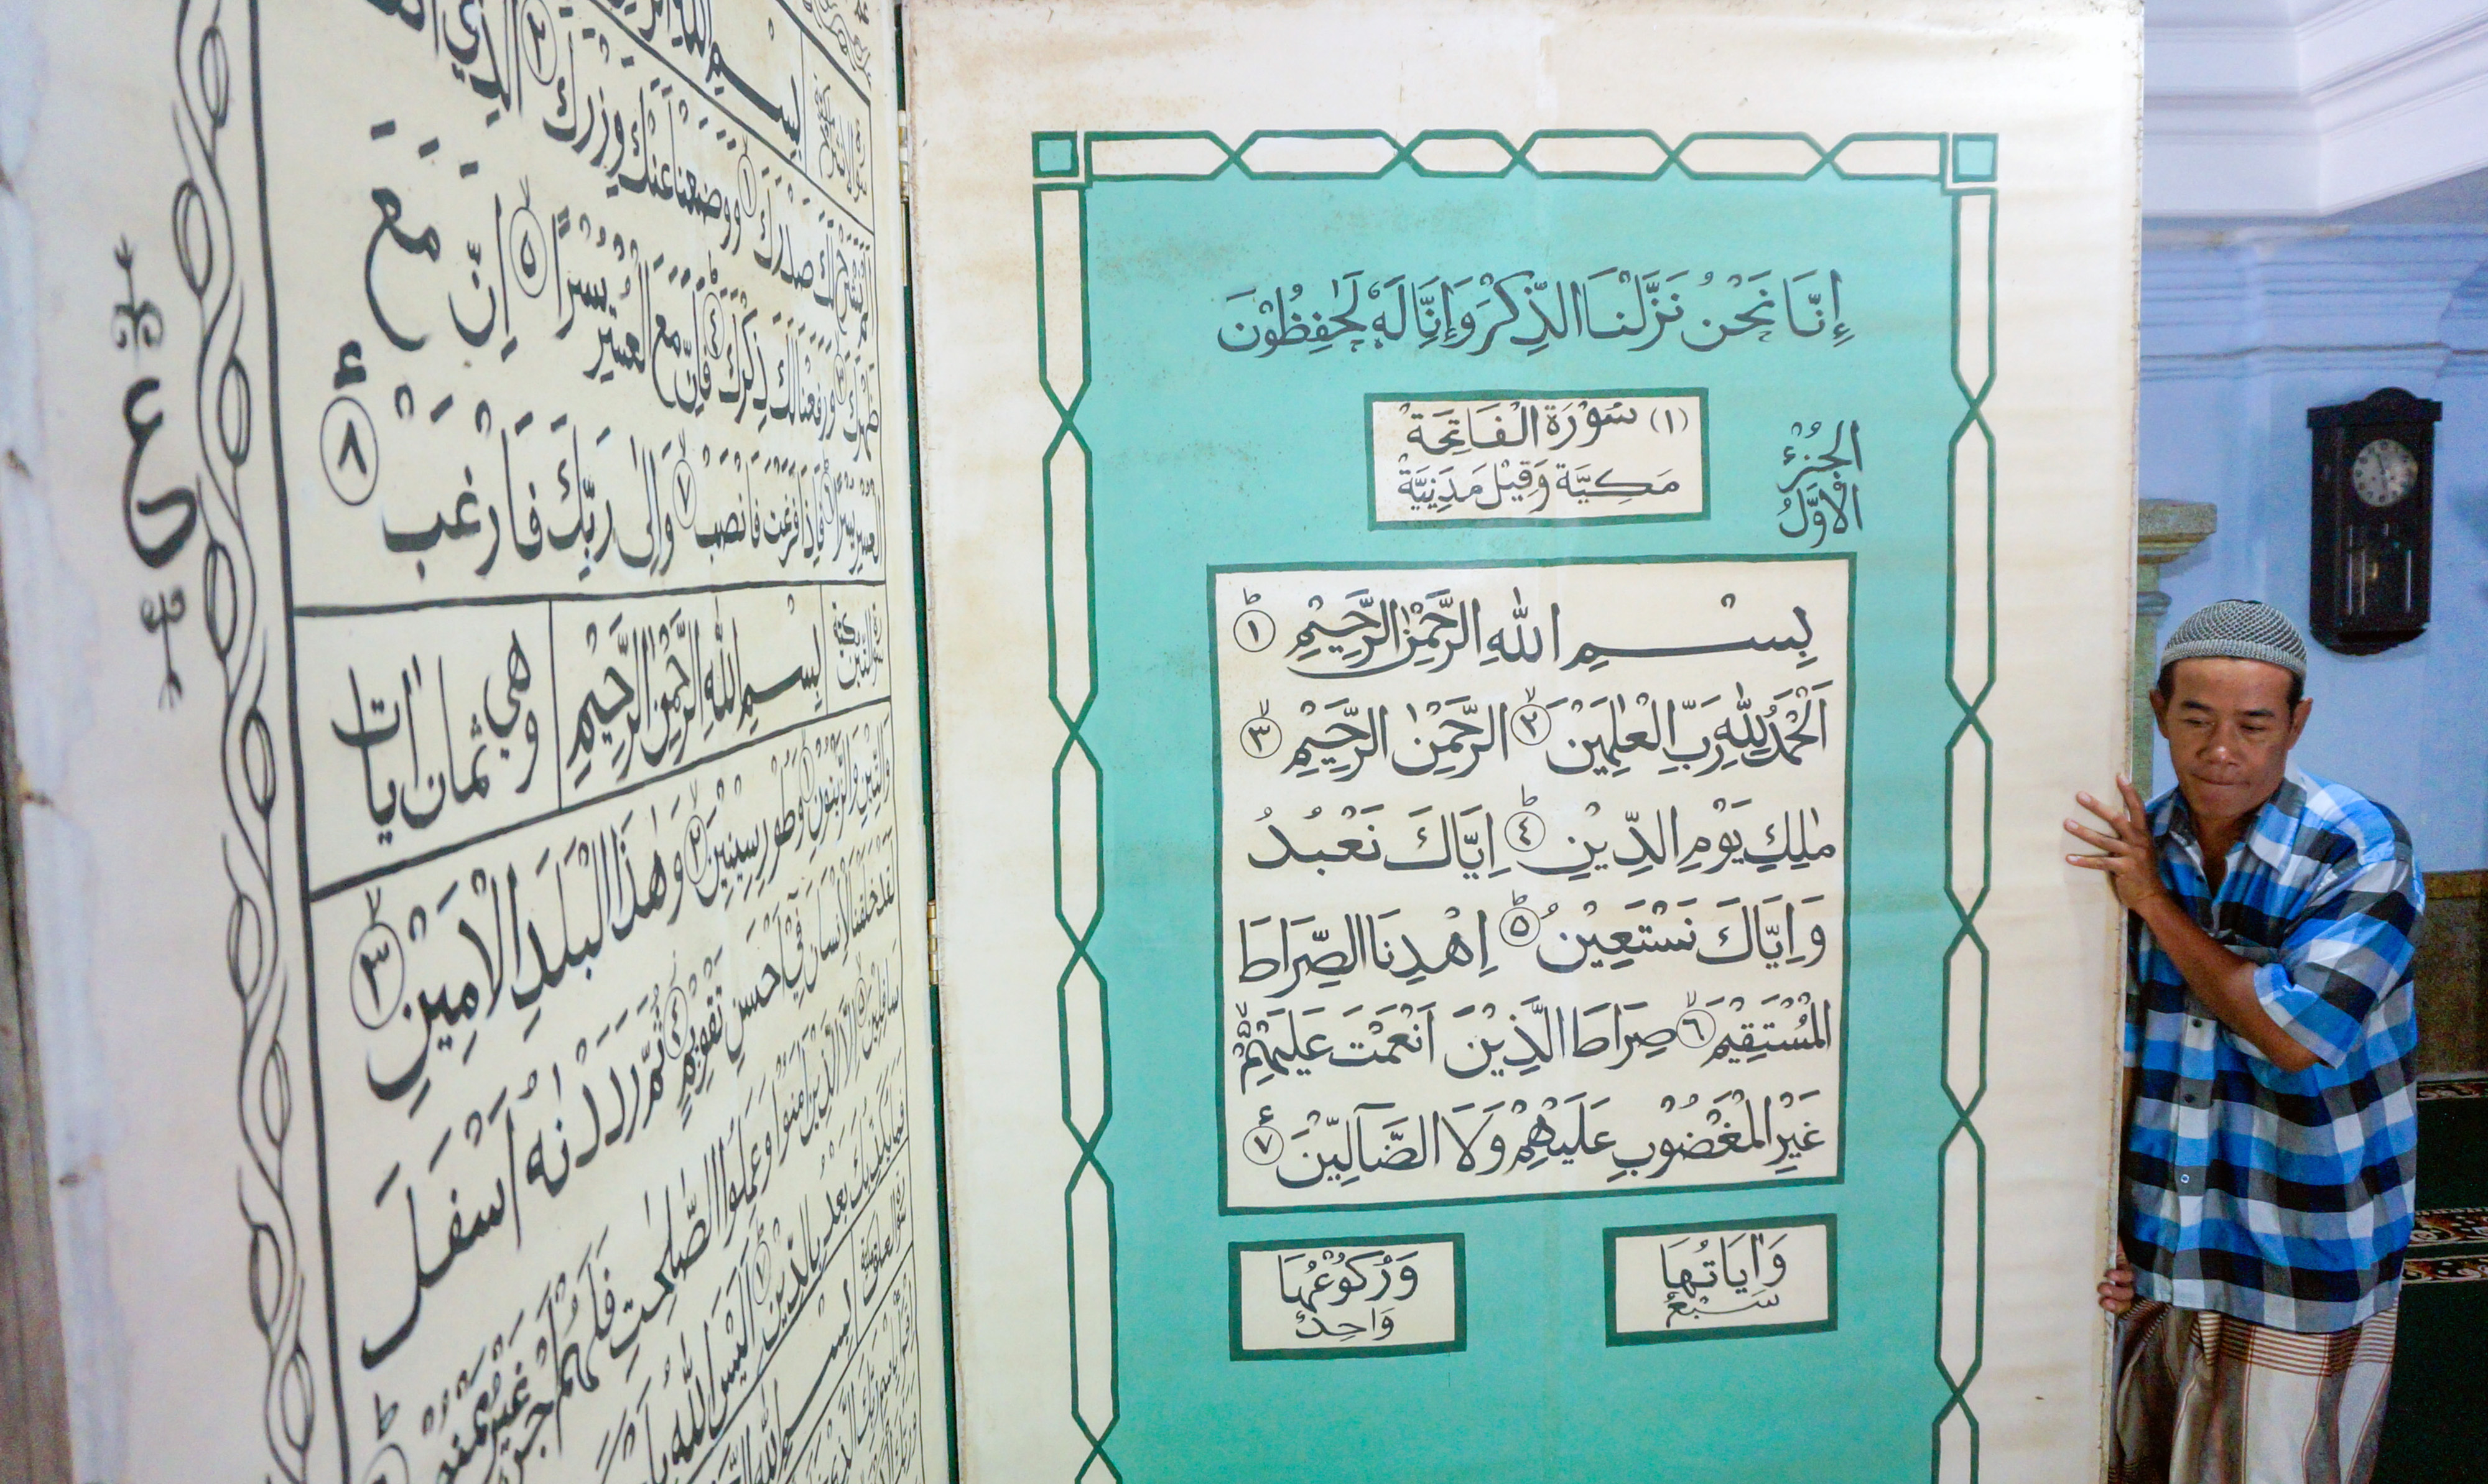 إِنَّا نَحْنُ نَزَّلْنَا الذِّكْرَ وَإِنَّا لَهٗ لَحٰفِظُوْنَ
(١) سُوْرَةُ الْفَاتِحَةْ
مَكِيَّة وَقِيْلَ مَدَنِيَّةْ
الْجُزْءُ
الْأَوَّلُ
بِسْــمِ اللّٰهِ الرَّحْمٰنِ الرَّحِيْمِ ١
اَلْحَمْدُ لِلّٰهِ رَبِّ الْعٰلَمِيْنَ ٢ الرَّحْمٰنِ الرَّحِيْمِ ٣
مٰلِكِ يَوْمِ الدِّيْنِ ٤ اِيَّاكَ نَعْبُدُ
وَاِيَّاكَ نَسْتَعِيْنُ ٥ اِهْدِنَا الصِّرَاطَ
الْمُسْتَقِيْمَ ٦ صِرَاطَ الَّذِيْنَ اَنْعَمْتَ عَلَيْهِمْ
غَيْرِ الْمَغْضُوْبِ عَلَيْهِمْ وَلَا الضَّآلِّيْنَ ٧
وَاٰيَاتُهَا
سَبْعٌ
وَرُكُوْعُهَا
وَاحِدٌ
بِسْمِ اللّٰهِ
صَدْرَكَ ١ وَوَضَعْنَا عَنْكَ وِزْرَكَ ٢ الَّذِيْ
ظَهْرَكَ ٣ وَرَفَعْنَا لَكَ ذِكْرَكَ ٤ فَاِنَّ مَعَ الْعُسْرِ يُسْرًا ٥ اِنَّ مَعَ
الْعُسْرِ يُسْرًا ٦ فَاِذَا فَرَغْتَ فَانْصَبْ ٧ وَاِلٰى رَبِّكَ فَارْغَبْ ٨
ع
بِسْمِ اللّٰهِ الرَّحْمٰنِ الرَّحِيْمِ
وهي ثمان اٰيات
وَالتِّيْنِ وَالزَّيْتُوْنِ ١ وَطُوْرِ سِيْنِيْنَ ٢ وَهٰذَا الْبَلَدِ الْاَمِيْنِ ٣
لَقَدْ خَلَقْنَا الْاِنْسَانَ فِيْ اَحْسَنِ تَقْوِيْمٍ ٤ ثُمَّ رَدَدْنٰهُ اَسْفَلَ
سَافِلِيْنَ ٥ اِلَّا الَّذِيْنَ اٰمَنُوْا وَعَمِلُوا الصّٰلِحٰتِ فَلَهُمْ اَجْرٌ غَيْرُ
فَمَا يُكَذِّبُكَ بَعْدُ بِالدِّيْنِ ٧ اَلَيْسَ اللّٰهُ